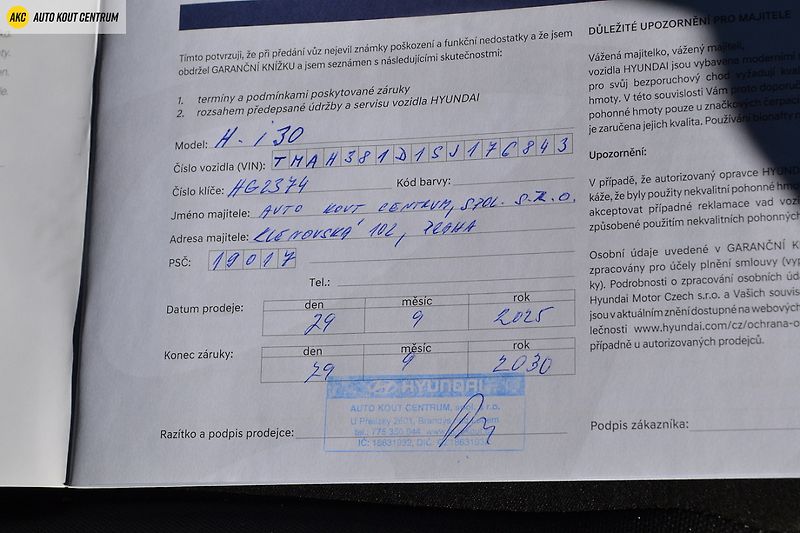 AKC AUTO KOUT CENTRUM
Tímto potvrzuji, že při předání vůz nejevil známky poškození a funkční nedostatky a že jsem
obdržel GARANČNÍ KNÍŽKU a jsem seznámen s následujícími skutečnostmi:
1. termíny a podmínkami poskytované záruky
2. rozsahem předepsané údržby a servisu vozidla HYUNDAI
Model: H - i30
Číslo vozidla (VIN): TMAH381D1SJ176843
Číslo klíče: HG2374 Kód barvy:
Jméno majitele: AUTO KOUT CENTRUM, SPOL. S.R.O.
Adresa majitele: KLENOVSKÁ 102, PRAHA
PSČ: 19017
Tel.:
Datum prodeje: den měsíc rok
29 9 2025
Konec záruky: den měsíc rok
29 9 2030
HYUNDAI
AUTO KOUT CENTRUM, spol. s r.o.
Razítko a podpis prodejce:
Podpis zákazníka:
DŮLEŽITÉ UPOZORNĚNÍ PRO MAJITELE
Vážená majitelko, vážený majiteli,
vozidla HYUNDAI jsou vybavena moderními
pro svůj bezporuchový chod vyžadují
hmoty. V této souvislosti Vám proto
pohonné hmoty pouze u značkových
je zaručena jejich kvalita. Používání bionafty
Upozornění:
V případě, že autorizovaný opravce
káže, že byly použity nekvalitní pohonné
akceptovat případné reklamace vad
způsobené použitím nekvalitních pohonných
Osobní údaje uvedené v GARANČNÍ
zpracovány pro účely plnění smlouvy
ky). Podrobnosti o zpracování osobních
Hyundai Motor Czech s.r.o. a Vašich
jsou v aktuálním znění dostupné na webových
lečnosti www.hyundai.com/cz/ochrana-o
případně u autorizovaných prodejců.